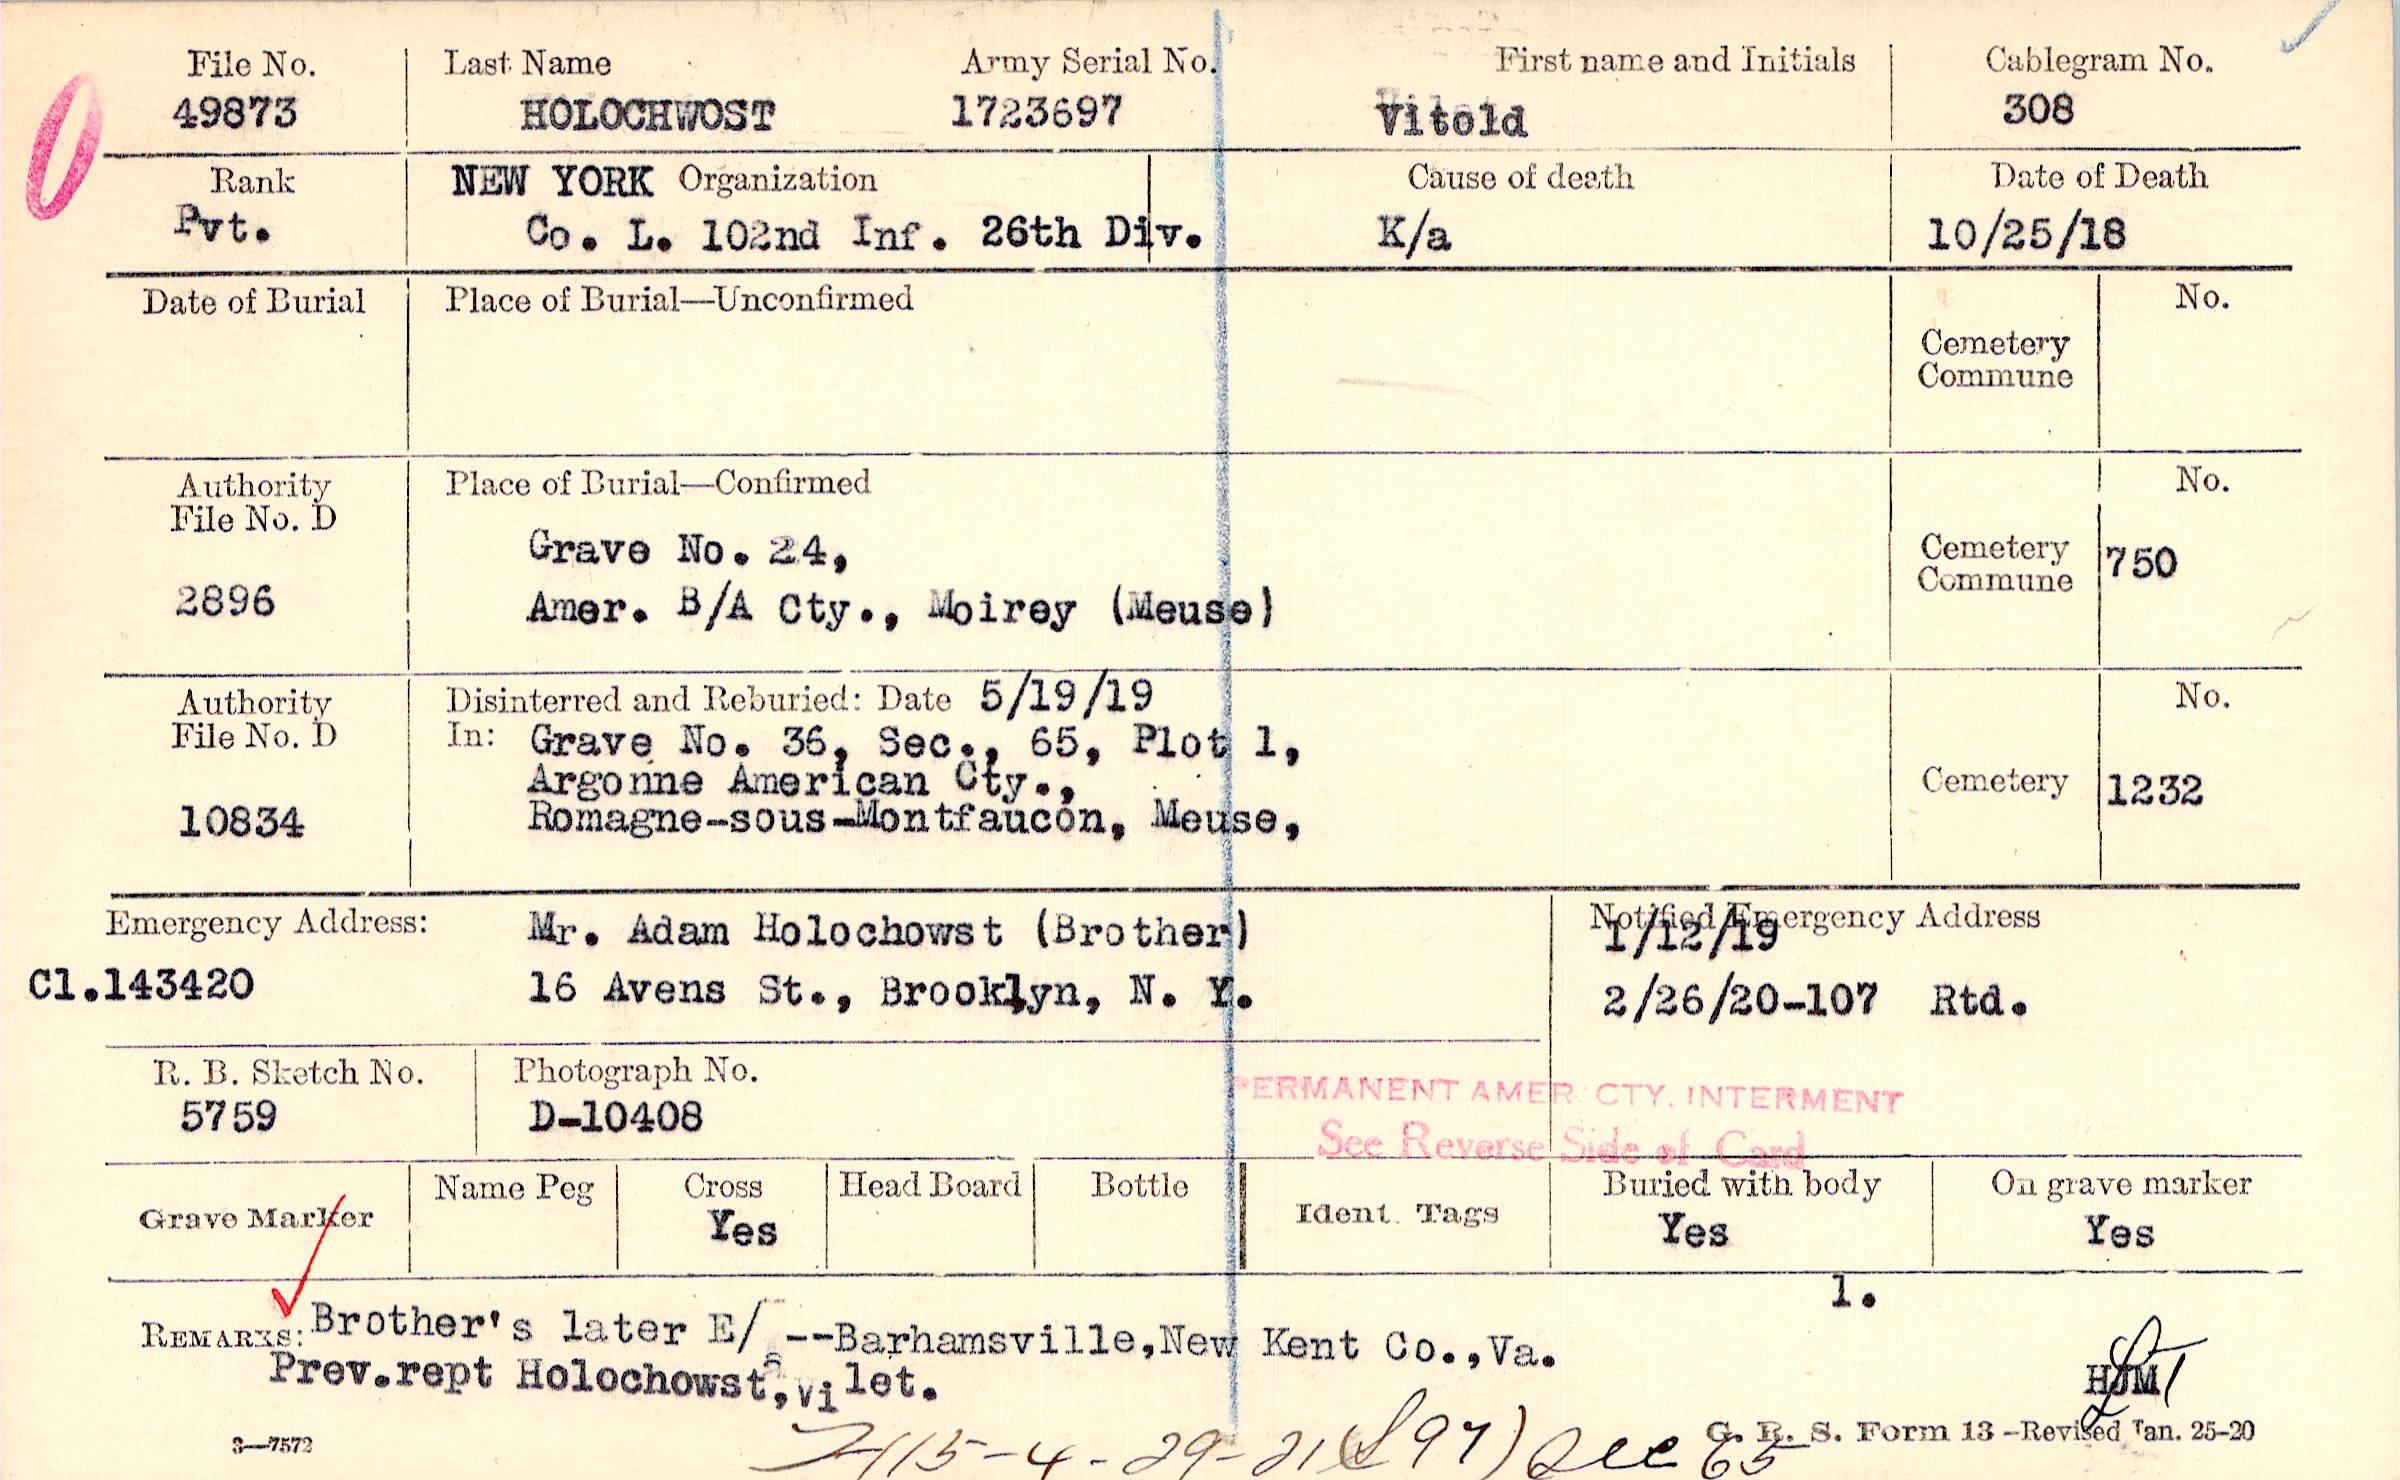 File No. Last Name Army Serial No. First name and Initials Cablegram No.
49873 HOLOCHWOST 1723697 Vitold 308
Rank NEW YORK Organization Cause of death Date of Death
Pvt. Co. L. 102nd Inf. 26th Div. K/a 10/25/18
Date of Burial Place of Burial—Unconfirmed No.
Cemetery
Commune
Authority Place of Burial—Confirmed No.
File No. D
Grave No. 24,
Cemetery
Commune 750
2896 Amer. B/A Cty., Moirey (Meuse)
Authority Disinterred and Reburied: Date 5/19/19 No.
File No. D In: Grave No. 36, Sec., 65, Plot 1,
Argonne American Cty., Cemetery 1232
10834 Romagne-sous-Montfaucon, Meuse,
Emergency Address: Mr. Adam Holochowst (Brother) Notified Emergency Address
1/12/19
Cl.143420 16 Avens St., Brooklyn, N. Y. 2/26/20-107 Rtd.
R. B. Sketch No. Photograph No.
5759 D-10408
PERMANENT AMER. CTY. INTERMENT
See Reverse Side of Card
Grave Marker Name Peg Cross Head Board Bottle Ident. Tags Buried with body On grave marker
Yes Yes Yes
1.
REMARKS: Brother's later E/ --Barhamsville, New Kent Co., Va.
Prev.rept Holochowst, Vi let.
HJM
3—7572
G. R. S. Form 13 -Revised Jan. 25-20
4-29-21 See 65